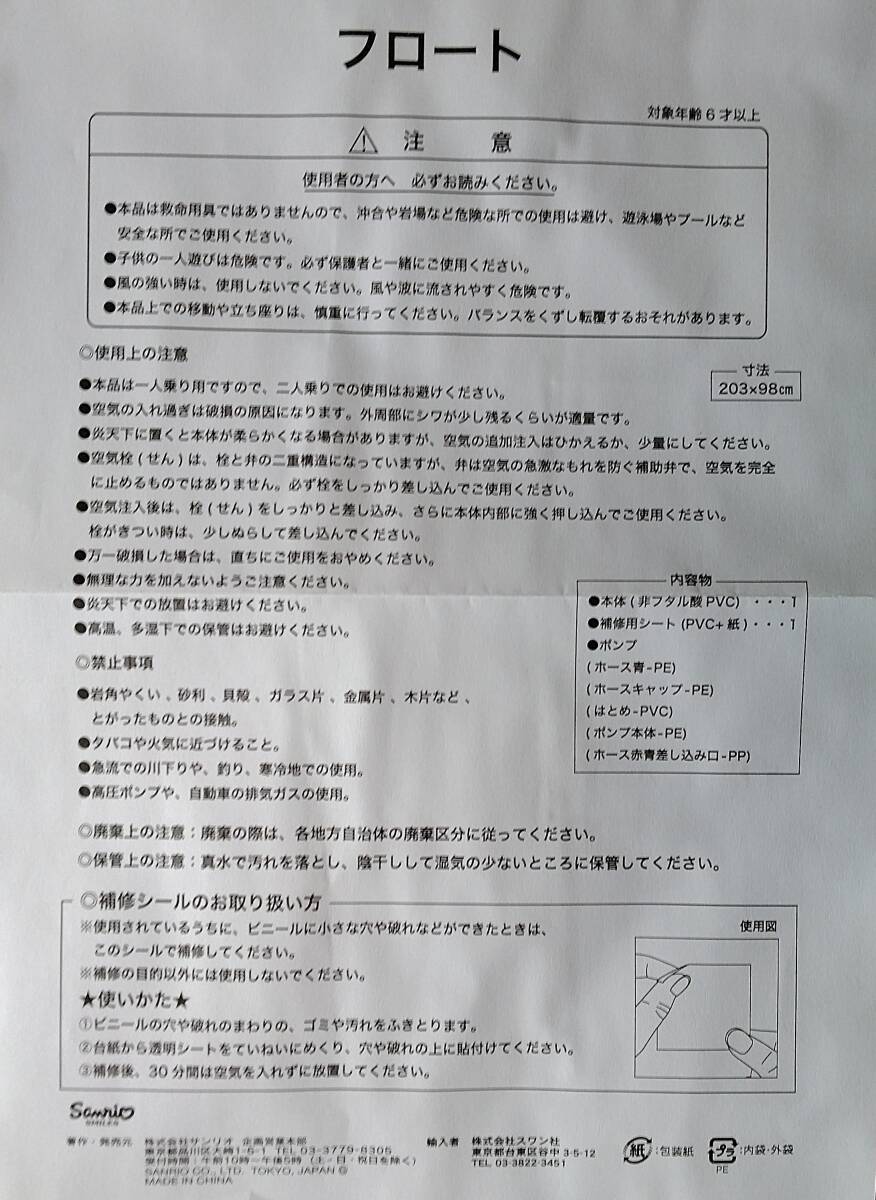 フロート
対象年齢6才以上
注 意
使用者の方へ 必ずお読みください。
●本品は救命用具ではありませんので、沖合や岩場など危険な所での使用は避け、遊泳場やプールなど
安全な所でご使用ください。
●子供の一人遊びは危険です。必ず保護者と一緒にご使用ください。
●風の強い時は、使用しないでください。風や波に流されやすく危険です。
●本品上での移動や立ち座りは、慎重に行ってください。バランスをくずし転覆するおそれがあります。
◎使用上の注意
寸法
203×98㎝
●本品は一人乗り用ですので、二人乗りでの使用はお避けください。
●空気の入れ過ぎは破損の原因になります。外周部にシワが少し残るくらいが適量です。
●炎天下に置くと本体が柔らかくなる場合がありますが、空気の追加注入はひかえるか、少量にしてください。
●空気栓(せん)は、栓と弁の二重構造になっていますが、弁は空気の急激なもれを防ぐ補助弁で、空気を完全
に止めるものではありません。必ず栓をしっかり差し込んでご使用ください。
●空気注入後は、栓(せん)をしっかりと差し込み、さらに本体内部に強く押し込んでご使用ください。
栓がきつい時は、少しぬらして差し込んでください。
●万一破損した場合は、直ちにご使用をおやめください。
●無理な力を加えないようご注意ください。
●炎天下での放置はお避けください。
●高温、多湿下での保管はお避けください。
内容物
●本体(非フタル酸PVC)・・・1
●補修用シート(PVC+紙)・・・1
●ポンプ
(ホース青-PE)
(ホースキャップ-PE)
(はとめ-PVC)
(ポンプ本体-PE)
(ホース赤青差し込み口-PP)
◎禁止事項
●岩角やくい、砂利、貝殻、ガラス片、金属片、木片など、
とがったものとの接触。
●タバコや火気に近づけること。
●急流での川下りや、釣り、寒冷地での使用。
●高圧ポンプや、自動車の排気ガスの使用。
◎廃棄上の注意：廃棄の際は、各地方自治体の廃棄区分に従ってください。
◎保管上の注意：真水で汚れを落とし、陰干しして湿気の少ないところに保管してください。
◎補修シールのお取り扱い方
※使用されているうちに、ビニールに小さな穴や破れなどができたときは、
このシールで補修してください。
※補修の目的以外には使用しないでください。
★使いかた★
①ビニールの穴や破れのまわりの、ゴミや汚れをふきとります。
②台紙から透明シートをていねいにめくり、穴や破れの上に貼付けてください。
③補修後、30分間は空気を入れずに放置してください。
使用図
Sanrio
SMILES
著作・発売元 株式会社サンリオ 企画営業本部
東京都品川区大崎1-6-1 TEL 03-3779-8305
受付時間：午前10時～午後5時（土・日・祝日を除く）
SANRIO CO., LTD. TOKYO, JAPAN ©
MADE IN CHINA
輸入者 株式会社スワン社
東京都台東区谷中3-5-12
TEL 03-3822-3451
紙：包装紙
プラ：内袋・外袋
PE